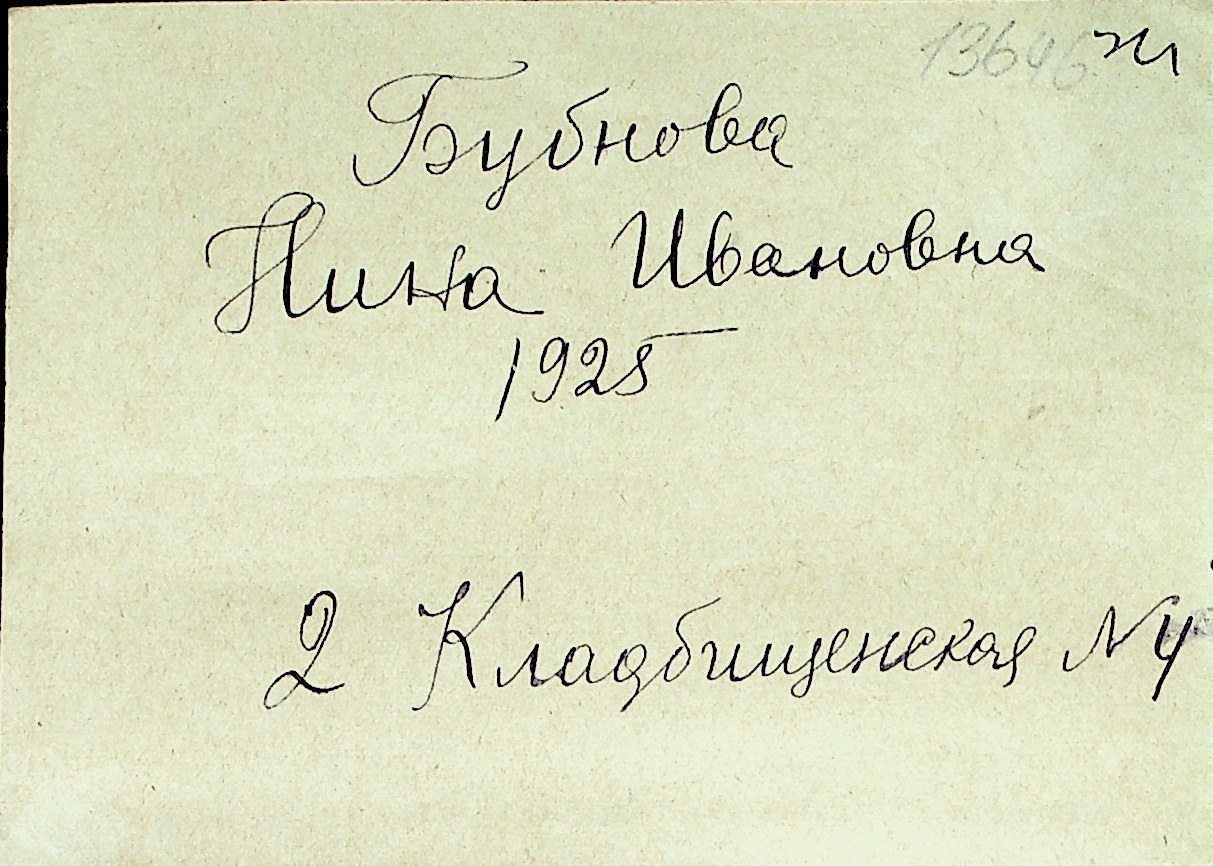 13646
Бубнова
Нина Ивановна
1925
2 Кладбищенская N 4